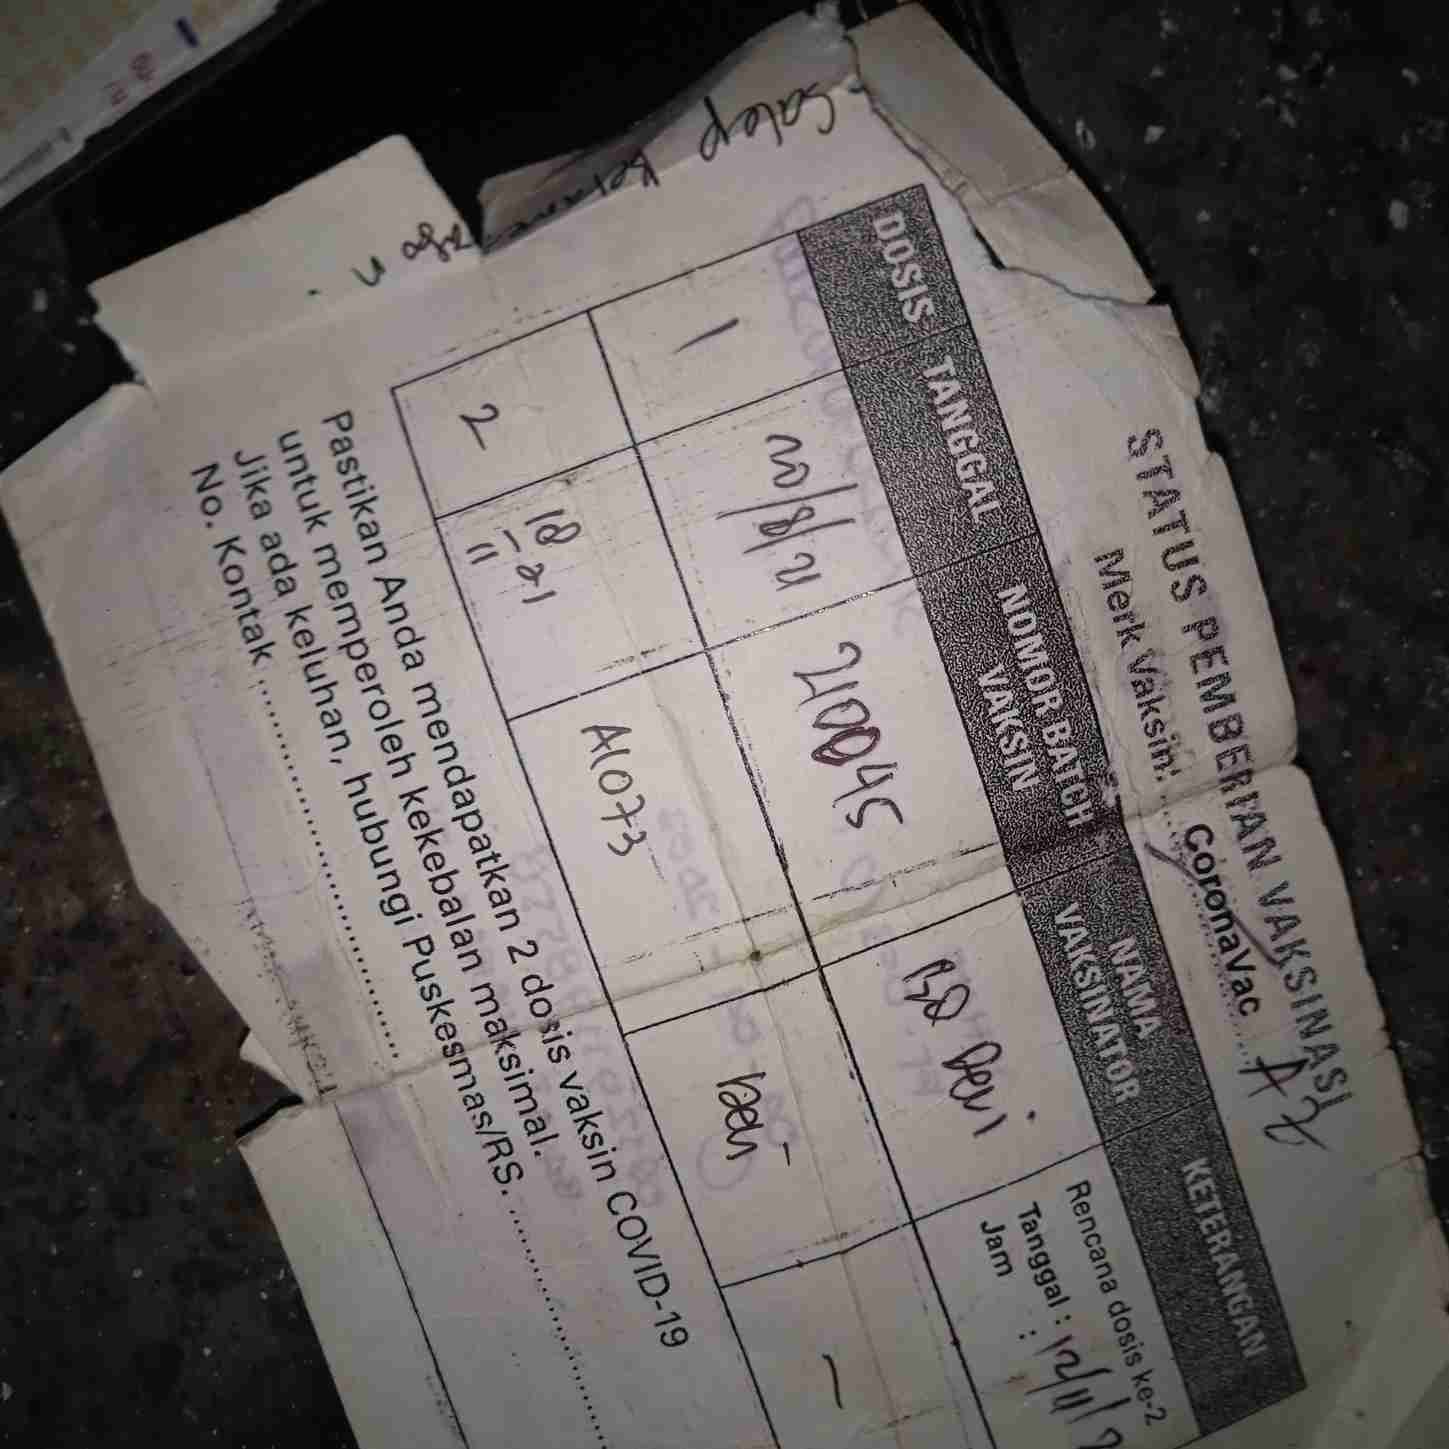 STATUS PEMBERIAN VAKSINASI
Merk Vaksin: CoronaVac AZ
DOSIS TANGGAL NOMOR BATCH VAKSIN NAMA VAKSINATOR KETERANGAN
1 210045 Dewi Rencana dosis ke-2
Tanggal : 12/11/
Jam :
2 18/11-21 A1073 Dewi -
Pastikan Anda mendapatkan 2 dosis vaksin COVID-19
untuk memperoleh kekebalan maksimal.
Jika ada keluhan, hubungi Puskesmas/RS. ....................
No. Kontak ........................................
Salep